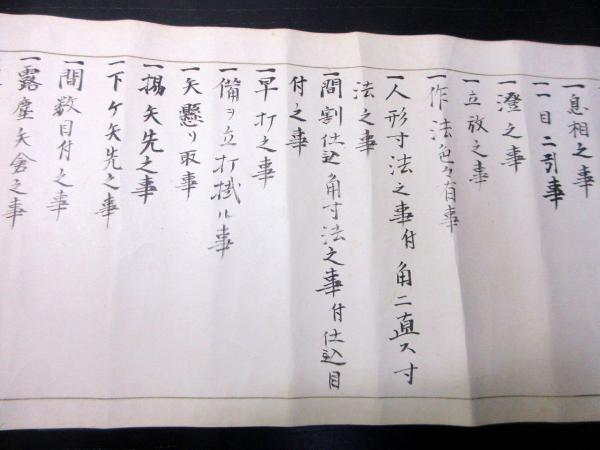 一息相之事
一一目ニ引事
一澄之事
一立放之事
一作法色々有事
一人形寸法之事付角ニ直ス寸
法之事
一間割仕込角寸法之事付仕込目
付之事
一早打之事
一備ヲ立打掛ル事
一矢懸り取事
一揚矢先之事
一下ケ矢先之事
一間数目付之事
一露塵矢倉之事